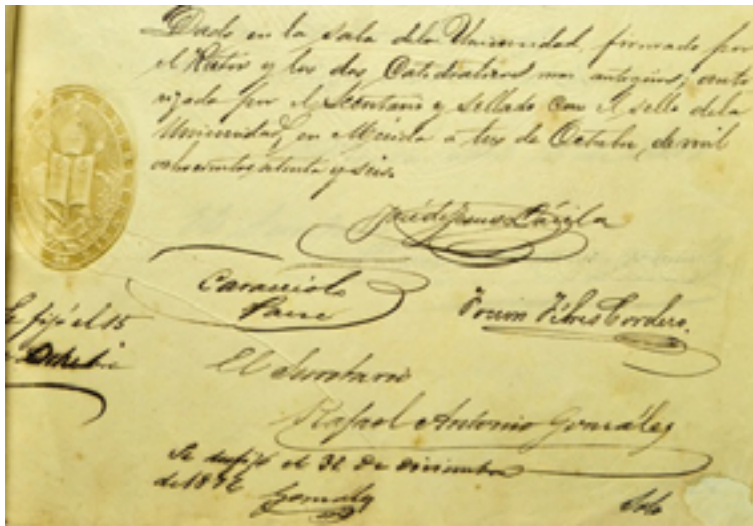 Dado en la sala de la Universidad, firmado por
el Rector y los dos Catedráticos mas antiguos; auto
rizado por el Secretario y sellado con el sello de la
Universidad, en Mérida a tres de Octubre, de mil
ochocientos setenta y seis.
José de Jesus Dávila
Caracciolo
Parra
Foción Febres Cordero.
Se fijó el 15
Octubre
El Secretario
Rafael Antonio González
Se desfijó el 31 de Diciembre
de 1876
González